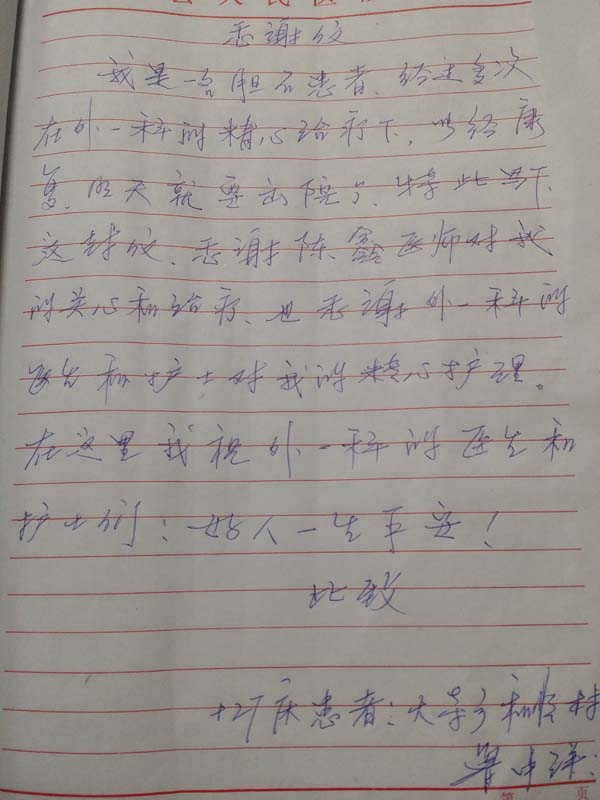 感谢信
我是一名胆石患者、经过多次
在外一科的精心治疗下、以经康
复、明天就要出院了、特此写下
这封信、感谢陈鑫医师对我
的关心和治疗、也感谢外一科的
医生和护士对我的精心护理。
在这里我祝外一科的医生和
护士们：好人一生平安！
此致
+27床患者：大
和顺村
中
第
页